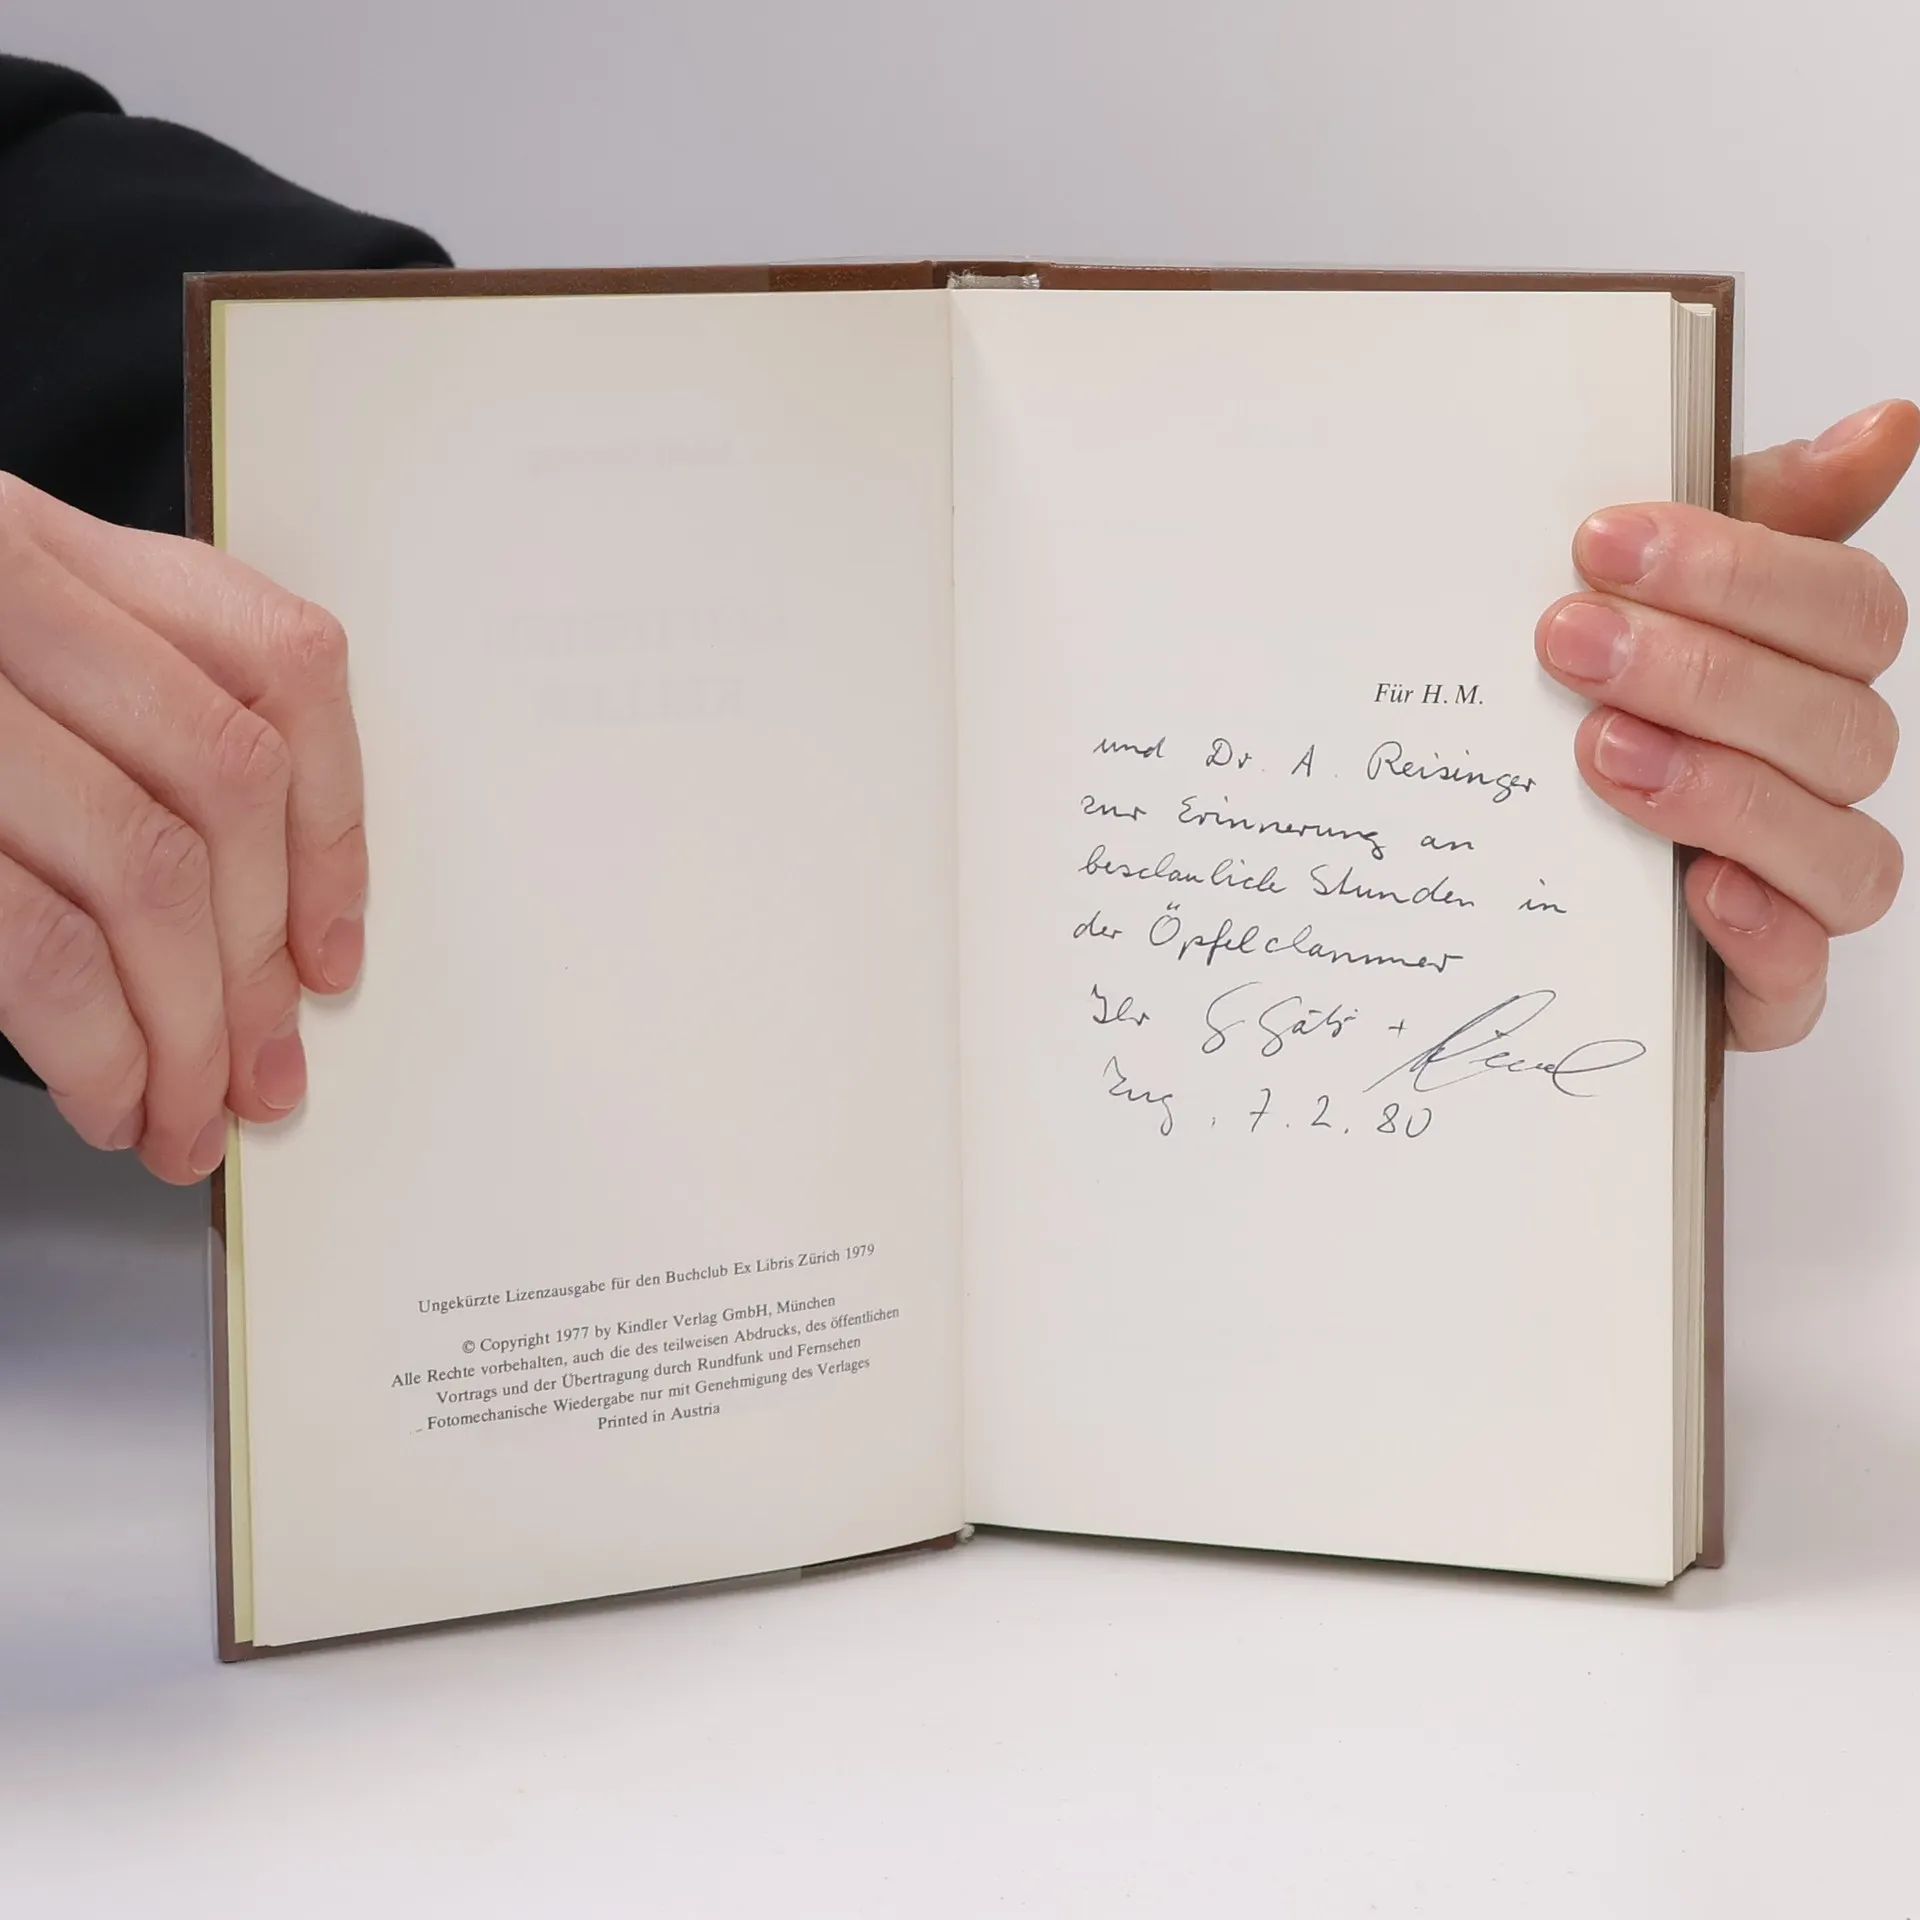 Ungekürzte Lizenzausgabe für den Buchclub Ex Libris Zürich 1979
© Copyright 1977 by Kindler Verlag GmbH, München
Alle Rechte vorbehalten, auch die des teilweisen Abdrucks, des öffentlichen
Vortrags und der Übertragung durch Rundfunk und Fernsehen
Fotomechanische Wiedergabe nur mit Genehmigung des Verlages
Printed in Austria
Für H. M.
und Dr. A. Reisinger
zur Erinnerung an
beschauliche Stunden in
der Öpfelchammer
Ihr +
Zug, 7. 2. 80